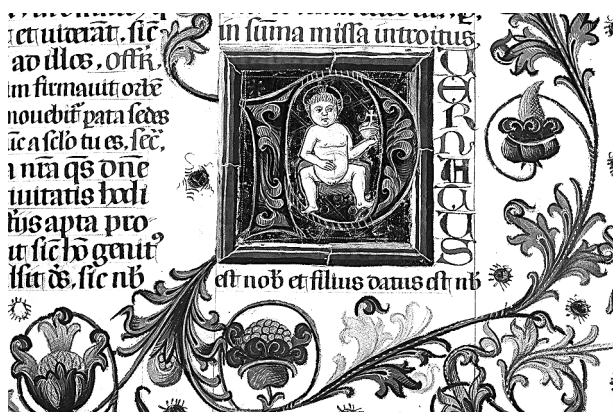 et uiderāt, sic
ad illos, offr̄,
m firmauit orbē
mouebit᷑ ꝑata sedes
ic a sclo tu es, sec̄,
a nr̄a qs̄ dn̄e
iuitatis hodi
tijs apta pro
ut sic hō genit⁹
lsit d̄s, sic nb̄
in sūma missa introitus,
PUER NATUS
est nob̄ et filius datus est nb̄